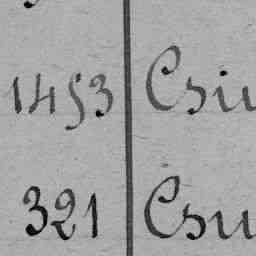 1453 Csu
321 Csu